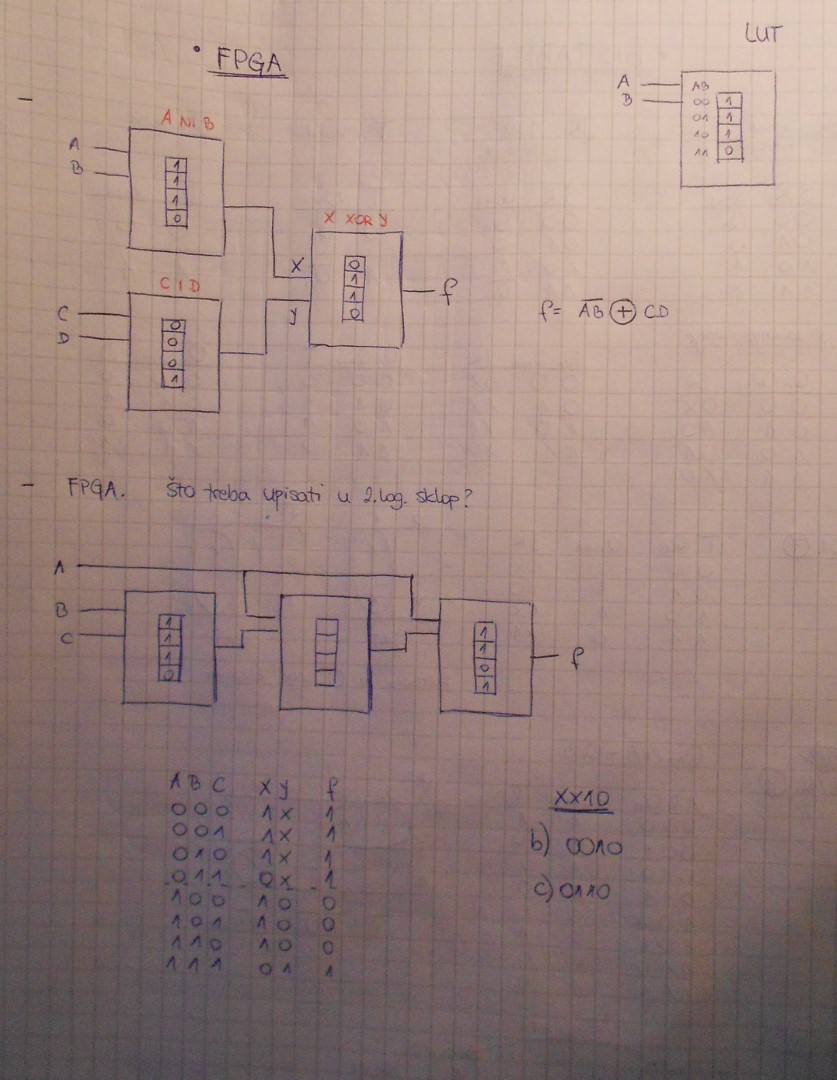 LUT
• FPGA
A AB
B 00 1
01 1
10 1
11 0
-
A NI B
A
B
1
1
1
0
X XOR Y
X
y
0
1
1
0
f
f= A̅B̅ ⊕ CD
C I D
C
D
0
0
0
1
- FPGA. Što treba upisati u 2.log. sklop?
A
B
C
1
1
1
0
1
1
0
1
f
A B C X Y f
0 0 0 1 X 1
0 0 1 1 X 1
0 1 0 1 X 1
0 1 1 0 X 1
1 0 0 1 0 0
1 0 1 1 0 0
1 1 0 1 0 0
1 1 1 0 1 1
XX10
b) 0010
c) 0110